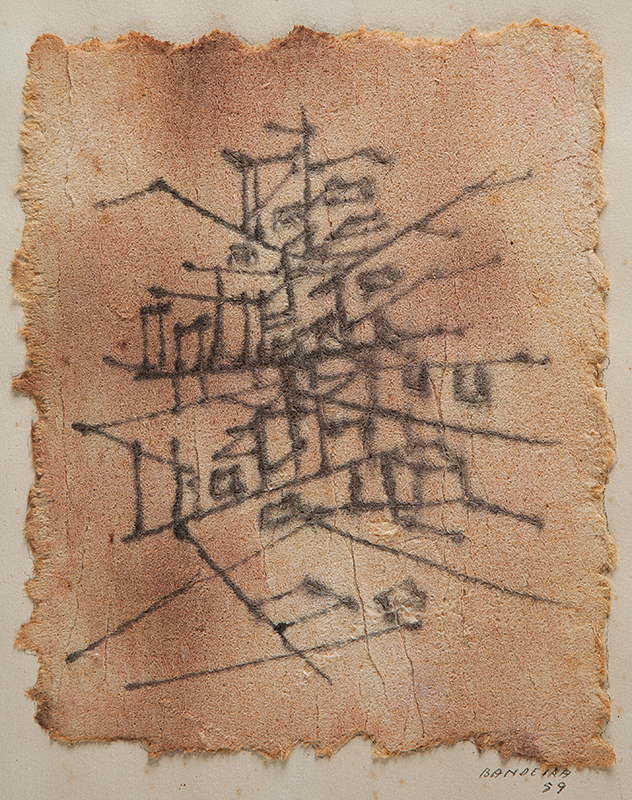 BANDEIRA
59